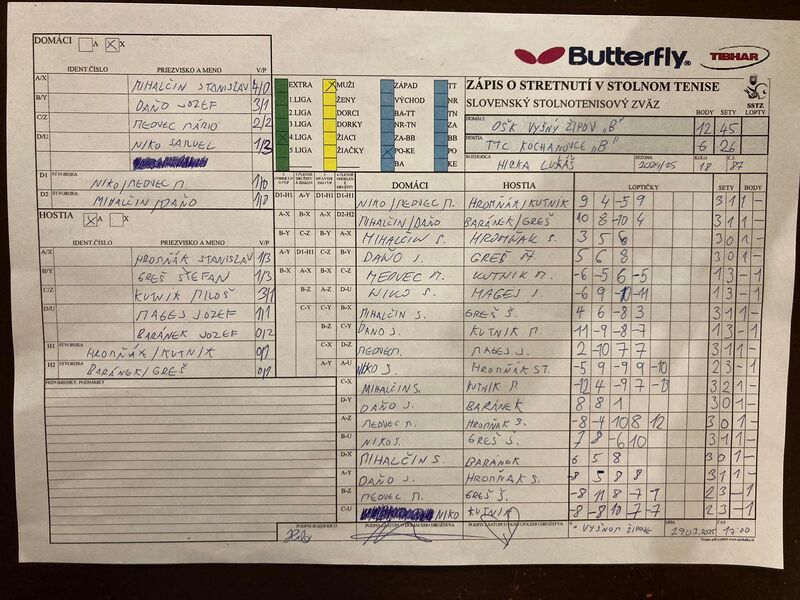 DOMÁCI A X
IDENT.ČÍSLO PRIEZVISKO A MENO V/P
A/X MIHALČIN STANISLAV 4/0
B/Y DAŇO JOZEF 3/1
C/Z MEDVEC MÁRIO 2/2
D/U NIKO SAMUEL 1/3
D1 ŠTVORHRA NIKO/MEDVEC M. 1/0
D2 ŠTVORHRA MIHALČIN/DAŇO 1/0
HOSTIA A X
IDENT.ČÍSLO PRIEZVISKO A MENO V/P
A/X HROMŇÁK STANISLAV 1/3
B/Y GREŠ ŠTEFAN 1/3
C/Z KUTNIK MILOŠ 3/1
D/U MAGEJ JOZEF 1/1
BARÁNEK JOZEF 0/2
H1 ŠTVORHRA HROMŇÁK/KUTNIK 0/1
H2 ŠTVORHRA BARÁNEK/GREŠ 0/1
PRIPOMIENKY, POZNÁMKY
Butterfly TIBHAR
EXTRA MUŽI ZÁPAD TT
1.LIGA ŽENY VÝCHOD NR
2.LIGA DORCI BA-TT TN
3.LIGA DORKY NR-TN ZA
4.LIGA ŽIACI ZA-BB BB
5.LIGA ŽIAČKY PO-KE PO
BA KE
ZÁPIS O STRETNUTÍ V STOLNOM TENISE
SLOVENSKÝ STOLNOTENISOVÝ ZVÄZ
SSTZ
DOMÁCI: OŠK VYŠNÝ ŽIPOV "B" BODY 12 SETY 45 LOPTY
HOSTIA TTC KOCHANOVCE "B" 6 26
ROZHODCA HIRKA LUKÁŠ SEZÓNA 2024/25 KOLO 18 Č.Z. 87
DOMÁCI HOSTIA LOPTIČKY SETY BODY
D1-H1 NIKO/MEDVEC M. HROMŇÁK/KUTNIK 9 4 -5 9 3 1 1 -
D2-H2 MIHALČIN/DAŇO BARÁNEK/GREŠ 10 8 -10 4 3 1 1 -
A-X MIHALČIN S. HROMŇAK S. 3 5 6 3 0 1 -
B-Y DAŇO J. GREŠ Š. 5 6 8 3 0 1 -
C-Z MEDVEC M. KUTNIK M. -6 -5 6 -5 1 3 - 1
D-U NIKO S. MAGEJ J. -6 9 -10 -11 1 3 - 1
MIHALČIN S. GREŠ Š. 4 6 -8 3 3 1 1 -
DAŇO J. KUTNIK M. 11 -9 -8 -7 1 3 - 1
MEDVEC M. MAGEJ J. 2 -10 7 7 3 1 1 -
NIKO S. HROMŇÁK ST. -5 9 -9 9 -10 2 3 - 1
C-X MIHALČIN S. KUTNIK M. -12 4 -9 7 -13 3 2 1 -
D-Y DAŇO J. BARÁNEK 8 8 1 3 0 1 -
A-Z MEDVEC M. HROMŇAK S. -8 -4 10 8 12 3 0 1 -
B-U NIKO S. GREŠ Š. 7 8 -6 10 3 1 1 -
D-X MIHALČIN S. BARÁNEK 6 5 8 3 0 1 -
A-Y DAŇO J. HROMŇAK S. -8 5 8 8 3 1 1 -
B-Z MEDVEC M. GREŠ Š. -8 11 8 -7 -7 2 3 - 1
C-U NIKO KUTNIK -8 -8 10 7 -7 2 3 - 1
PODPIS ROZHODCU PODPIS ZÁSTUPCU DOMÁCEHO DRUŽSTVA PODPIS ZÁSTUPCU HOSŤUJÚCEHO DRUŽSTVA
V VYŠNOM ŽIPOVE DŇA 29.03.2025 ČAS 17:00